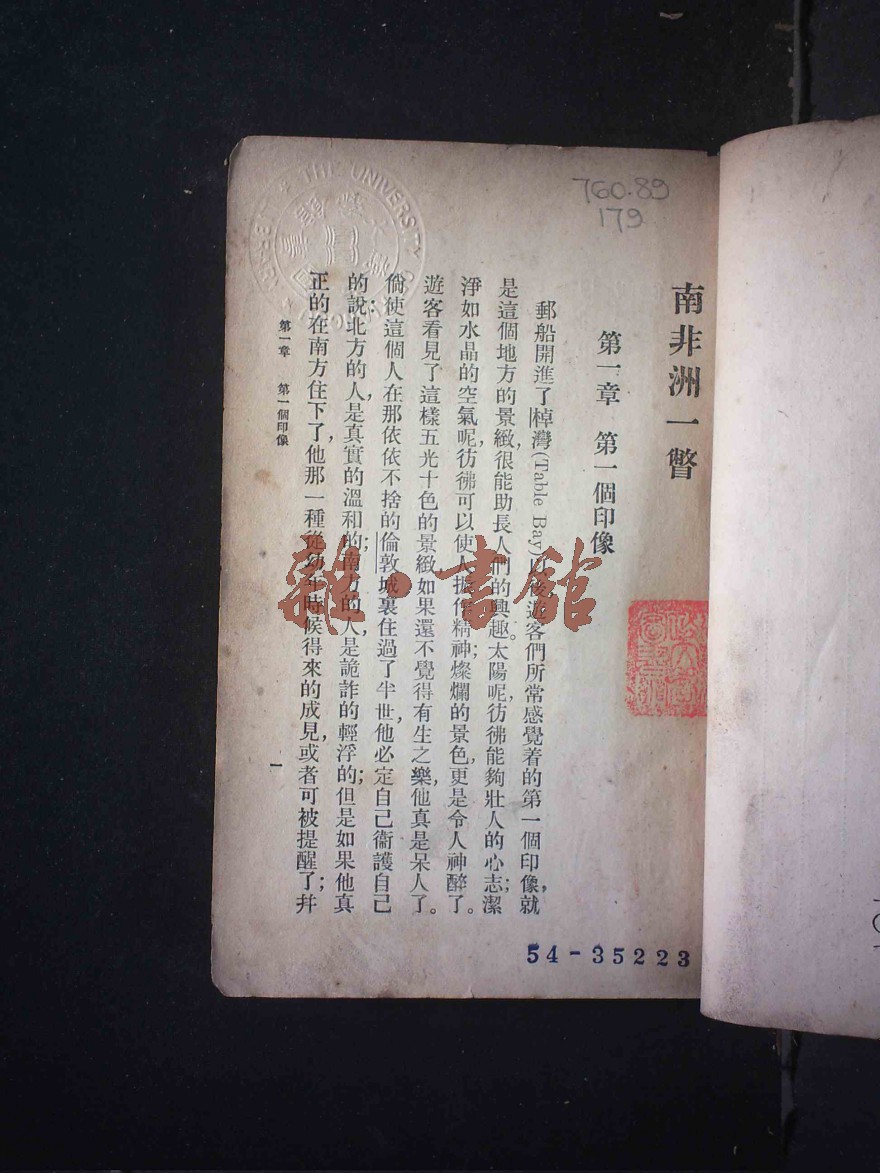 760.89
179
南非洲一瞥
第一章 第一個印像
郵船開進了棹灣(Table Bay)以後，遊客們所常感覺着的第一個印像，就
是這個地方的景緻，很能助長人們的興趣。太陽呢，彷彿能夠壯人的心志；潔
淨如水晶的空氣呢，彷彿可以使人振作精神；燦爛的景色，更是令人神醉了。
遊客看見了這樣五光十色的景緻，如果還不覺得有生之樂，他真是呆人了。
倘使這個人在那依依不捨的倫敦城裏住過了半世，他必定自己衞護自己
的說；北方的人，是真實的溫和的；南方的人，是詭詐的輕浮的；但是如果他真
正的在南方住下了，他那一種從幼年時候得來的成見，或者可被提醒了；幷
第一章 第一個印像
一
54-35223
雜·書館
THE UNIVERSITY